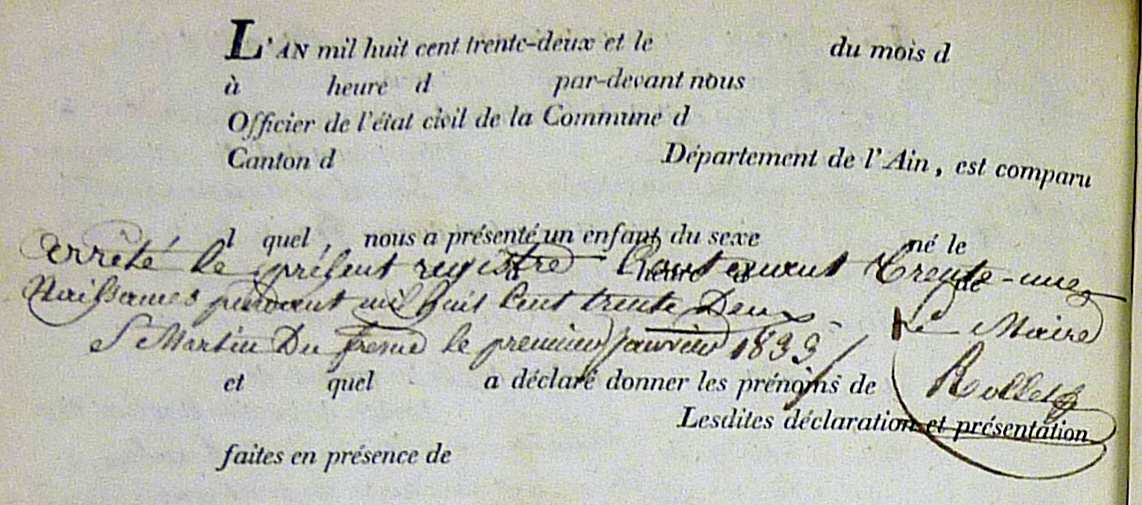 L'AN mil huit cent trente-deux et le du mois d
à heure d par-devant nous
Officier de l'état civil de la Commune d
Canton d Département de l'Ain, est comparu
l quel, nous a présenté un enfant du sexe né le
à heure d de
arrêté le présent registre Contenant Trente-une
Naissances pendant mil huit Cent trente Deux
St Martin Du fresne le premier janvier 1833 / Le Maire
et quel a déclaré donner les prénoms de Rollet
Lesdites déclaration et présentation
faites en présence de